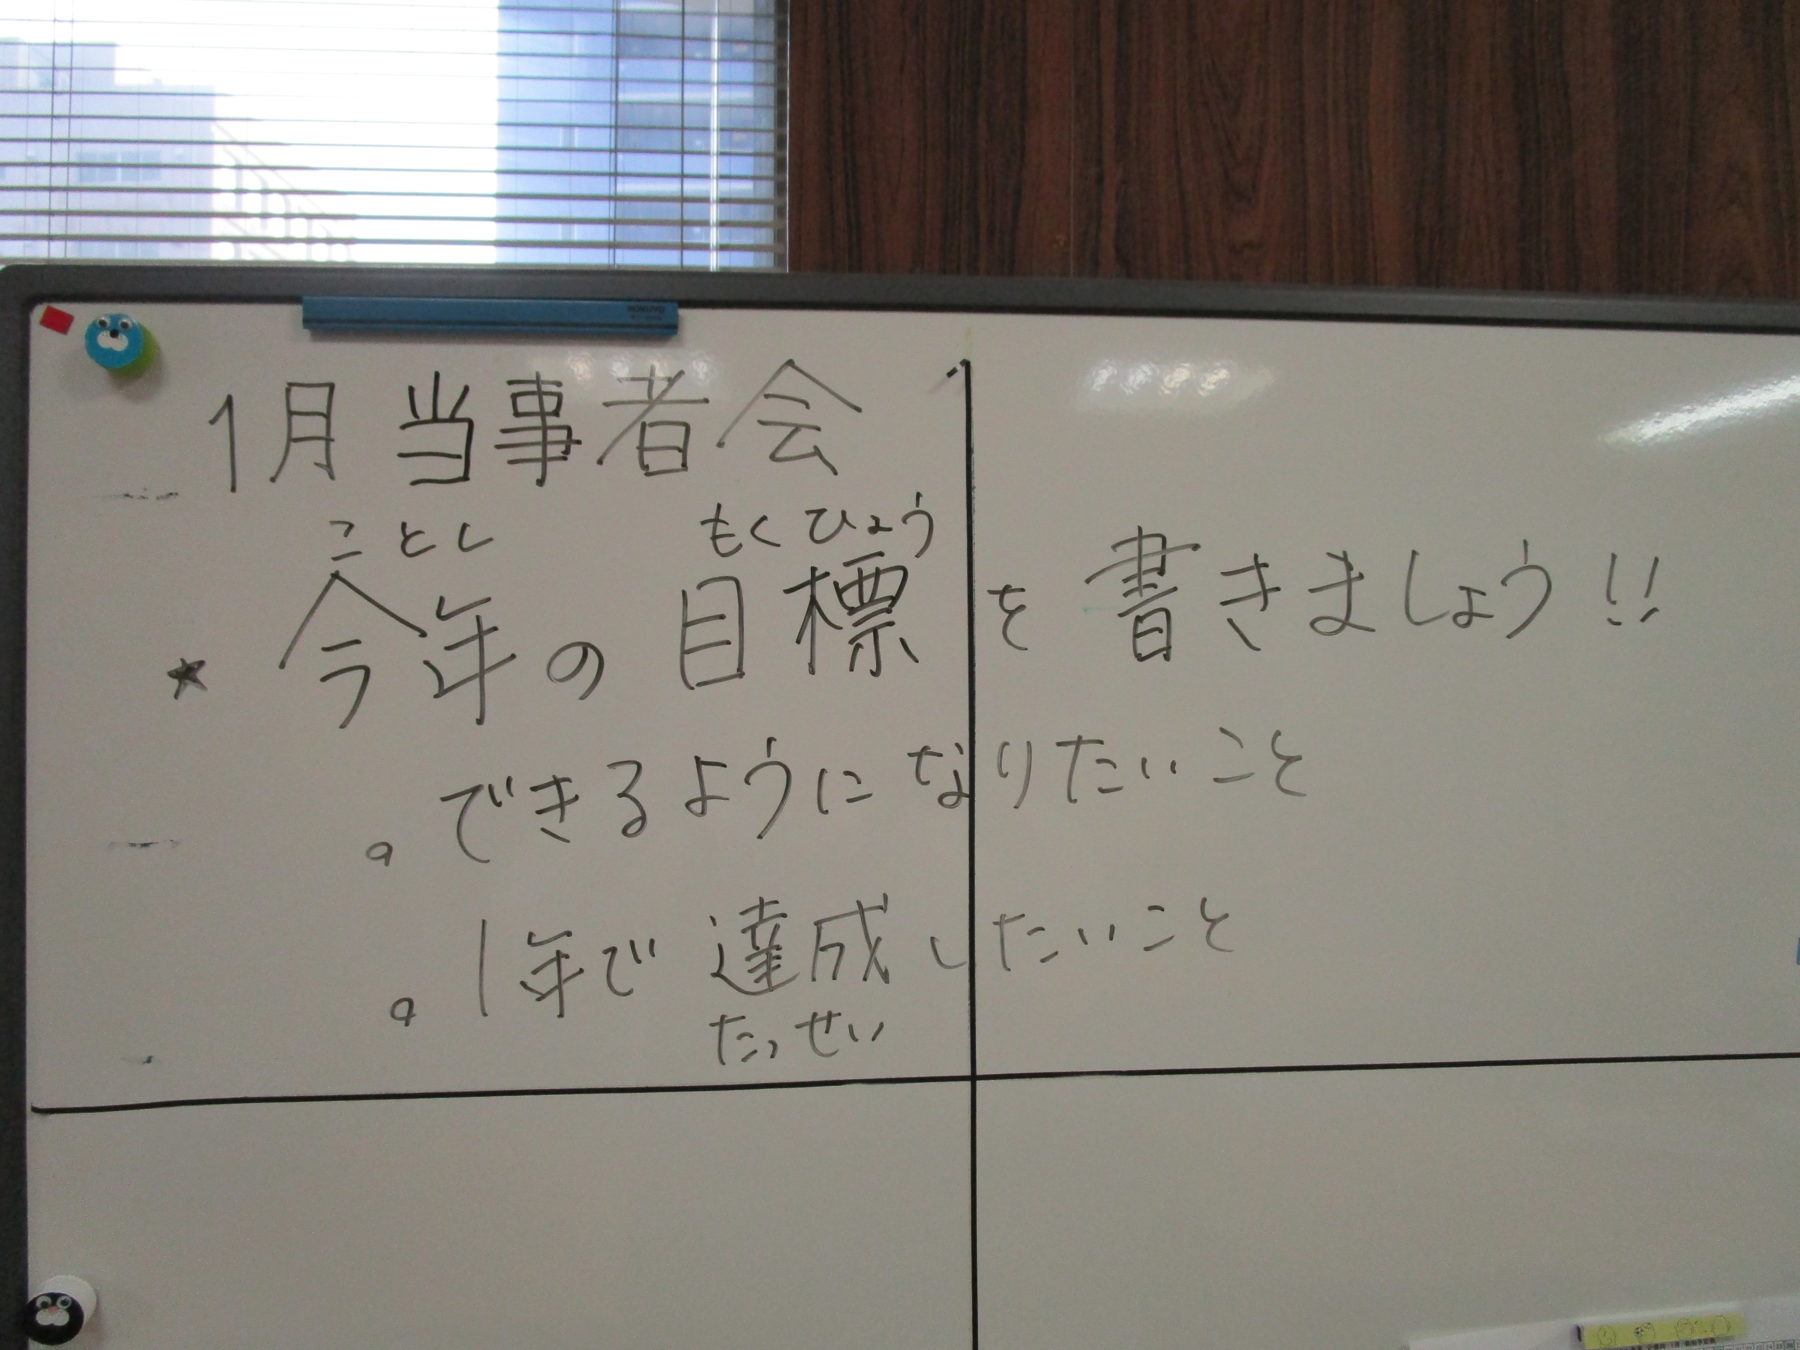 1月当事者会
ことし もくひょう
★今年の目標を書きましょう!!
。できるようになりたいこと
。1年で達成したいこと
たっせい